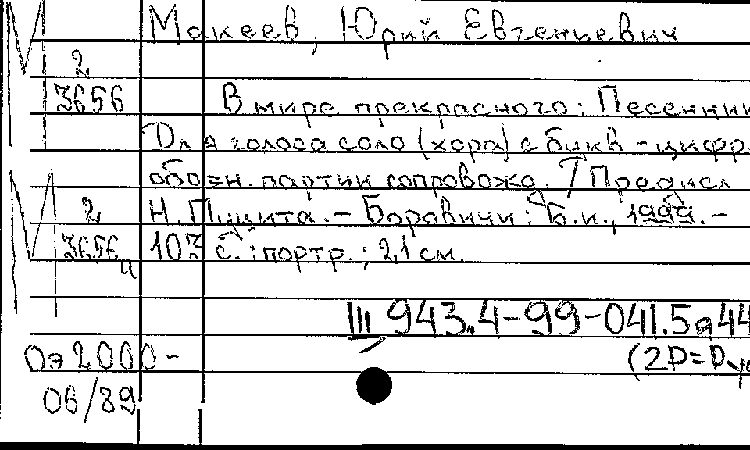 Макеев, Юрий Евгениевич
М 2
3656 В мире прекрасного: Песенник
Для голоса соло (хора) с букв-цифр.
обозн. партии сопровожд. / Предисл
М 2 Н. - Боровичи: Б.и., 1999.-
3656а 103 с.: портр.; 21 см.
III 943.4-99-041.5 а44
Оэ 2000-
(2Р=Р
06/89